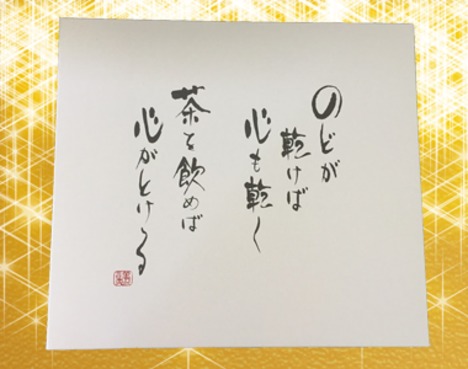 のどが
乾けば
心も乾く
茶を飲めば
心がとける